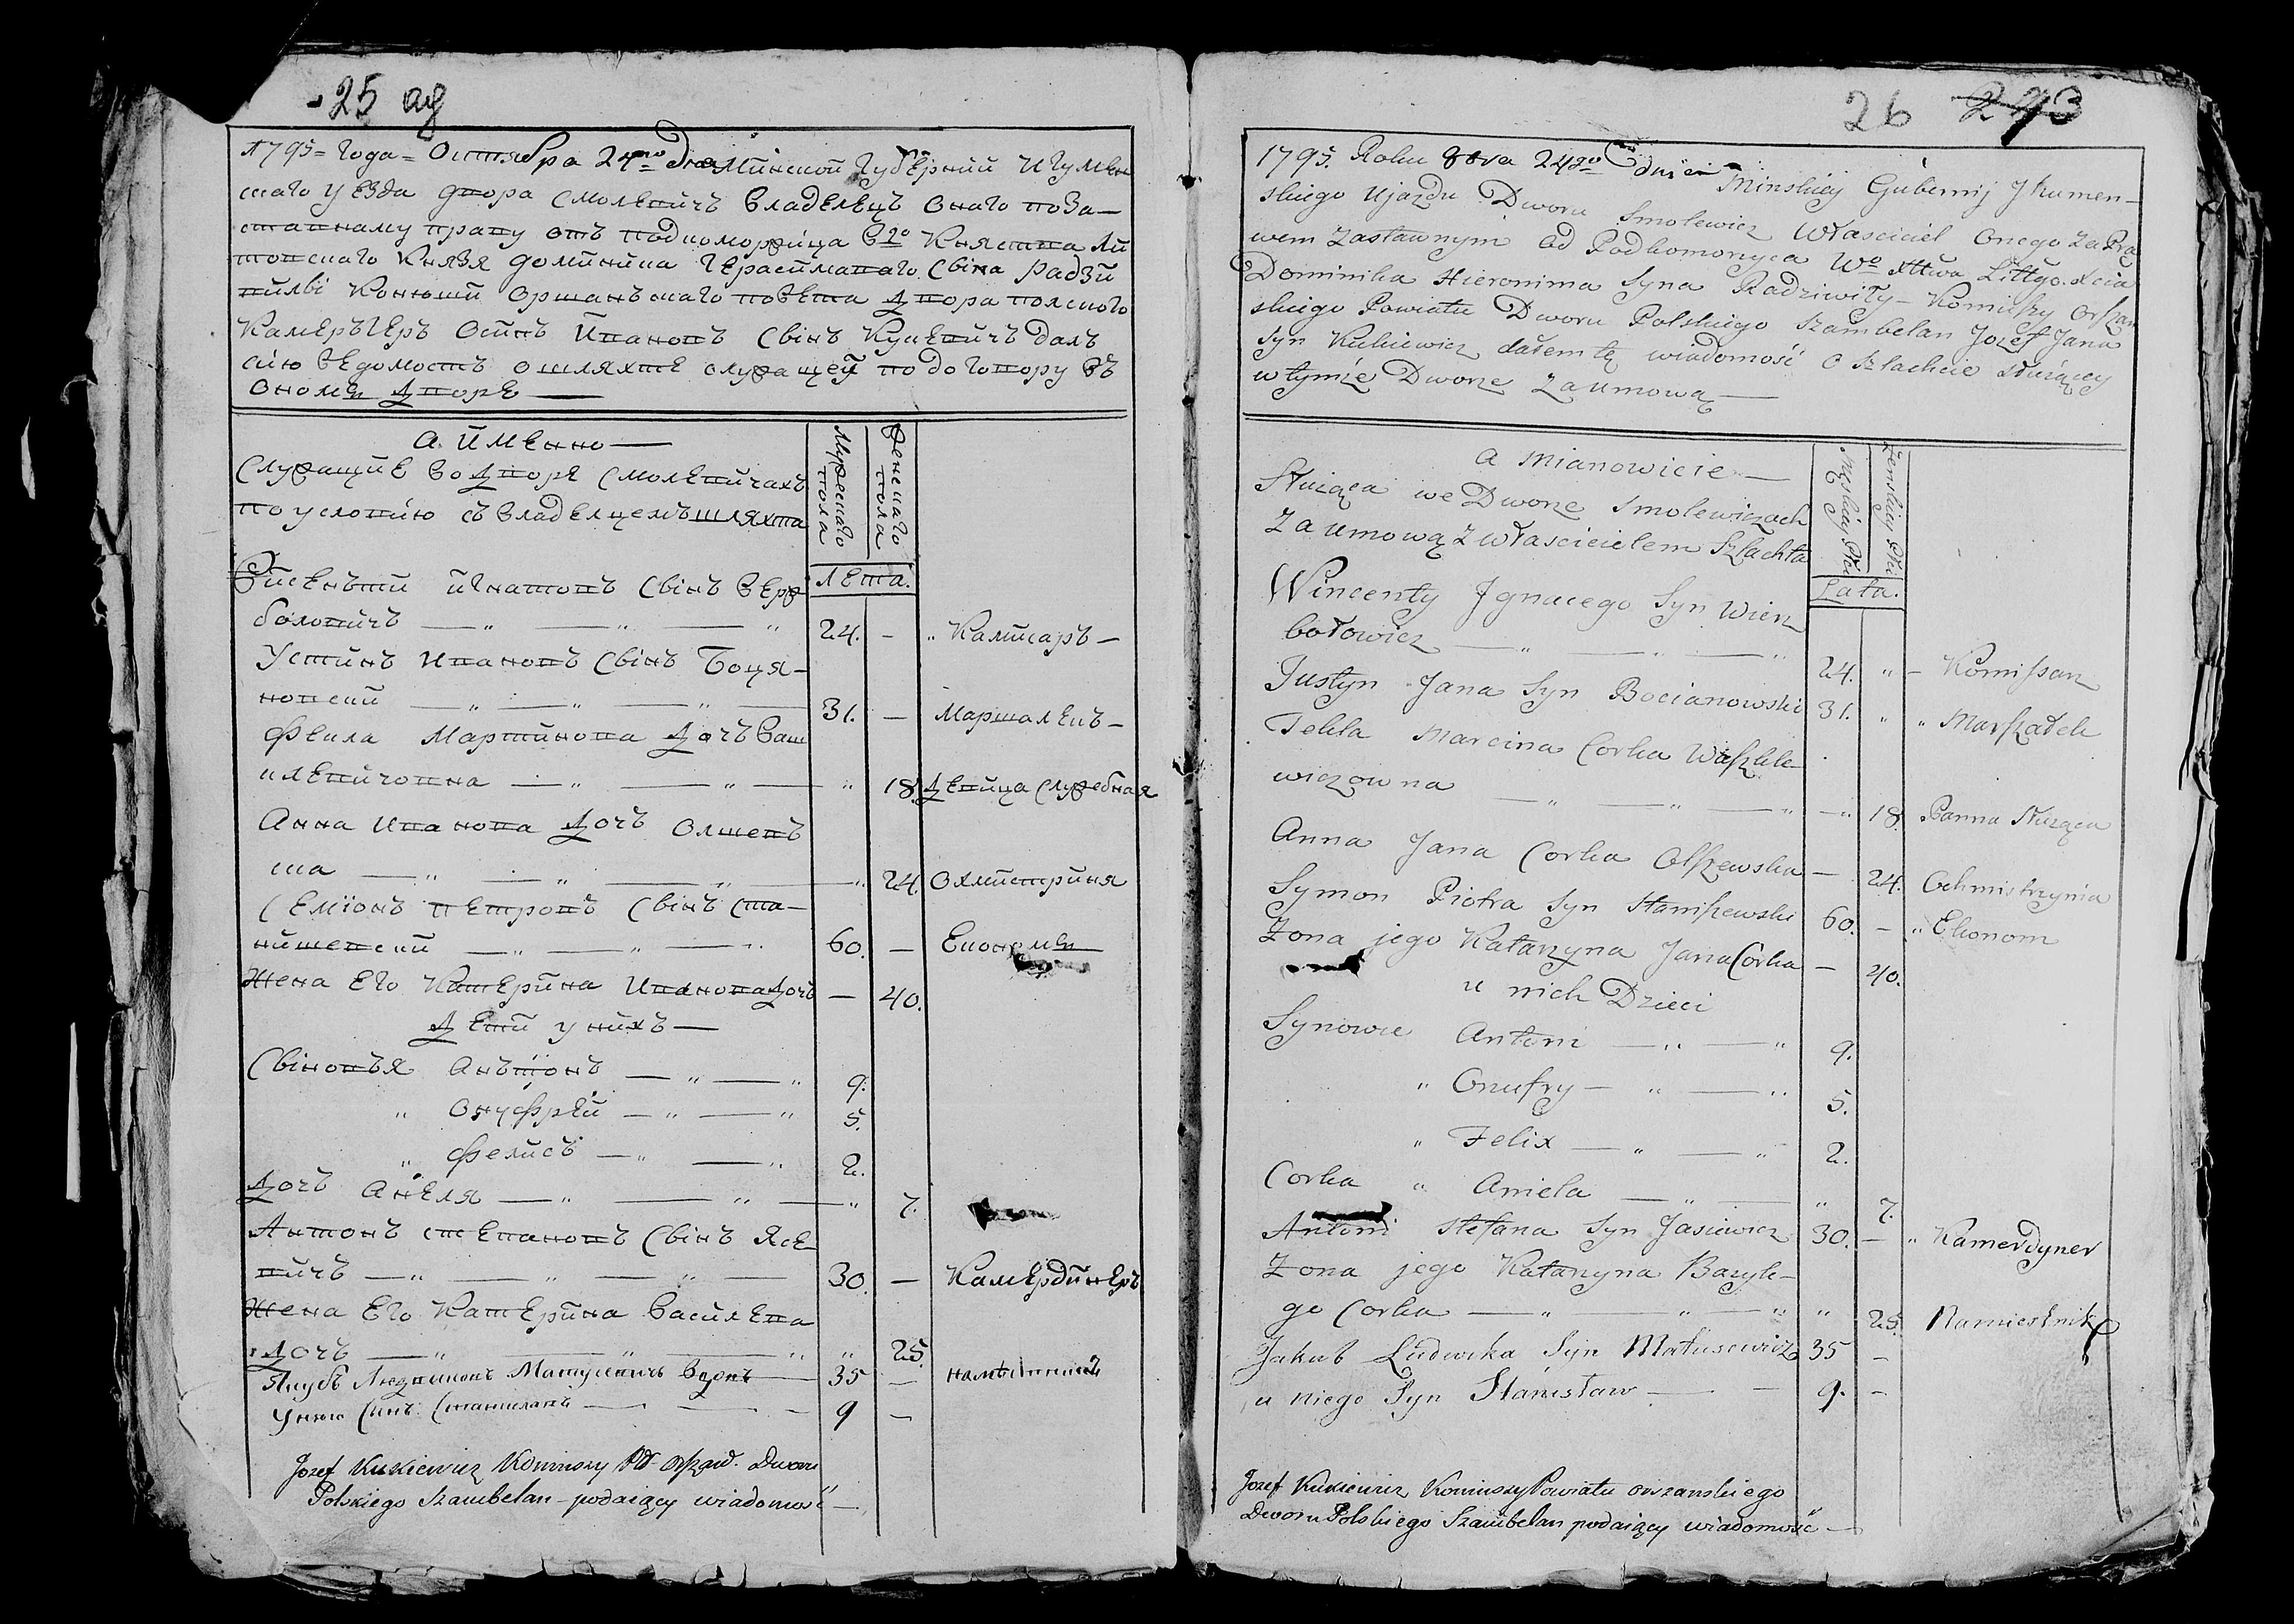 25 ад
1795= Года= Октября 24го дня Минской Губернии Игумен
скаго уезда двора Смолевичъ владелецъ онаго по за—
ставному праву отъ подкоморжица В го Княства Ли
товскаго Князя доминика Герасимаваго Сына Радзи
вилы Конюши Оршанъскаго повета двора полского
Камеръгеръ Осипъ Ивановъ Сынъ Кукевичъ далъ
сию ведомость о шляхте служащей по договору въ
ономъ дворе —
А Именно —
Служащие во дворе Смолевичахъ
по условию съ владелцемъ шляхта
Мужескаго пола
Женскаго пола
Лета.
Висенъти Игнатовъ Сынъ Верж
боловичъ — „ — „ — „ 24. — „ Камисаръ —
Устинъ Ивановъ Сынъ Боця—
новский — „ — „ — „ — 31. — Маршалекъ —
Фекла Мартинова дочъ Ваш
клевичовна — „ — „ — „ 18. девица служебная
Анна Иванова дочъ Олшевъ
ска — „ — „ — „ — „ 24. Охмистриня
Семионъ Петровъ Сынъ Ста—
нишевский — „ — „ — „ 60. — Економъ
Жена Его Катерина Иванова дочъ — 40.
дети у нихъ —
Сыновъя Анътонъ — „ — „ 9.
„ Онуфрей — „ — „ 5.
„ Феликсъ — „ — „ 2.
дочъ Анеля — „ — „ — „ 7.
Антонъ степановъ Сынъ Ясе
вичъ — „ — „ — „ — 30. — Камердинеръ
Жена Его Катерина Василева
дочъ — „ — „ — „ „ 25.
Якубъ Людвиковъ Матусевичъ — 35 — наместникъ
У него Сынъ Станиславъ — — — 9 —
Jozef Kukiewicz Koniuszy Ptu Orszań. Dworu
Polskiego Szambelan – podaiący wiadomość —
26 243
1795. Roku 8bra 24go dnia Minskiey Gubernij Jhumen—
skiego Ujazdu Dworu Smolewicz Właściciel Onego za Pra
wem Zastawnym od Podkomorzyca Wo Xttwa Littgo. Xcia
Dominika Hieronima Syna Radziwiły – Koniuszy Orszan
skiego Powiatu Dworu Polskiego Szambelan Jozef Jana
Syn Kukiewicz dałem tę wiadomość o Szlachcie służącey
w tymże Dworze za umową —
a Mianowicie —
Służąca we Dworze Smolewiczach
Za umową z właścicielem Szlachta
Męskiey Płci
Żenskiey Płci
Lata.
Wincenty Jgnacego Syn Wierz
bołowicz — „ — „ — „ 24. „ — Komissarz
Justyn Jana Syn Bocianowski 31. „ „ Marszałek
Tekla Marcina Corka Waszkle—
wiczowna — „ — „ — „ — „ 18. Panna Służąca
Anna Jana Corka Olszewska — 24. Ochmistrzynia
Symon Piotra Syn Staniszewski 60. — „ Ekonom
Zona jego Katarzyna Jana Corka — 40.
u nich Dzieci
Synowie Antoni — „ — „ 9.
„ Onufry — „ — „ 5.
„ Felix — „ — „ 2.
Corka „ Aniela — „ — „ 7.
Antoni Stefana Syn Jasiewicz 30. — „ Kamerdyner
Zona jego Katarzyna Bazyle—
go Corka — „ — „ — „ „ 25.
Jakub Ludwika Syn Matusewicz 35 — Namiestnik
u niego Syn Stanisław — — 9. —
Jozef Kukiewicz Koniuszy Powiatu Orszanskiego
Dworu Polskiego Szambelan podaiący wiadomość —